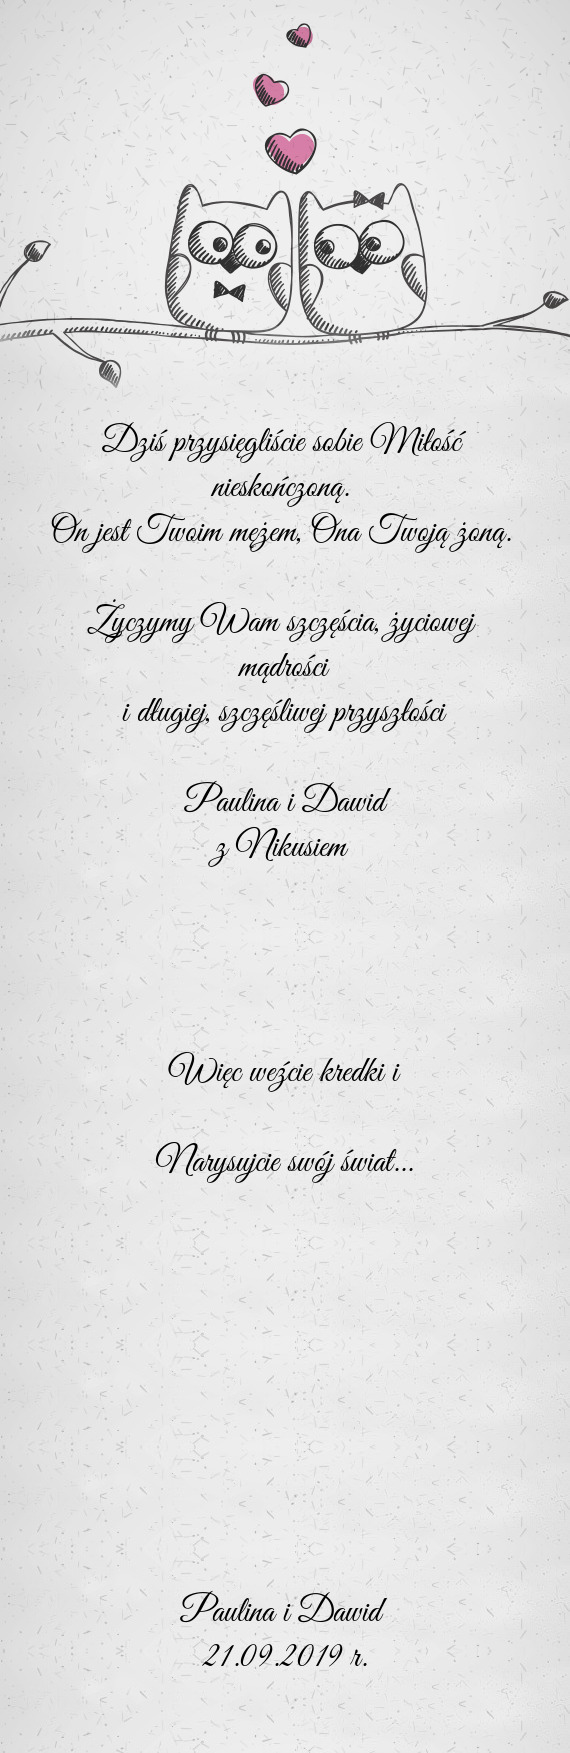 Dziś przysięgliście sobie Miłość
nieskończoną.
On jest Twoim mężem, Ona Twoją żoną.
Życzymy Wam szczęścia, życiowej
mądrości
i długiej, szczęśliwej przyszłości
Paulina i Dawid
z Nikusiem
Więc weźcie kredki i
Narysujcie swój świat...
Paulina i Dawid
21.09.2019 r.